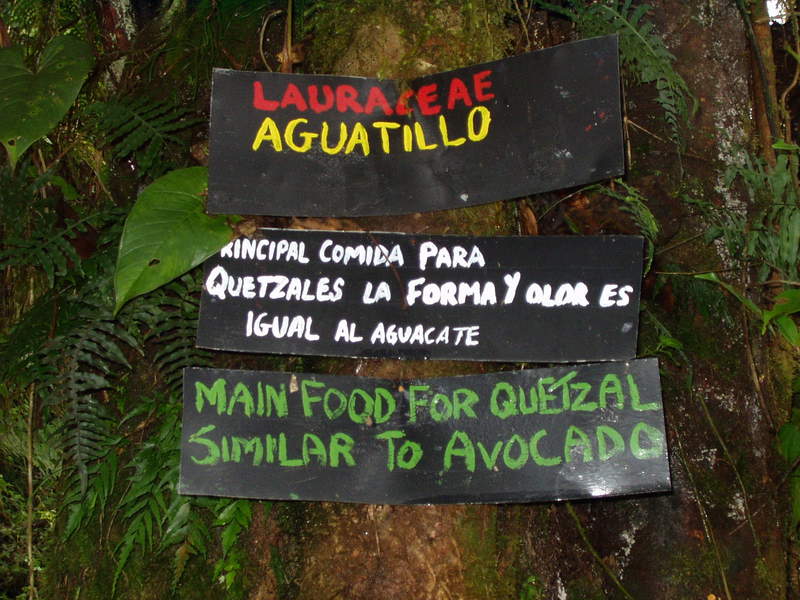 LAURACEAE
AGUATILLO
RINCIPAL COMIDA PARA
QUETZALES LA FORMA Y OLOR ES
IGUAL AL AGUACATE
MAIN FOOD FOR QUETZAL
SIMILAR TO AVOCADO